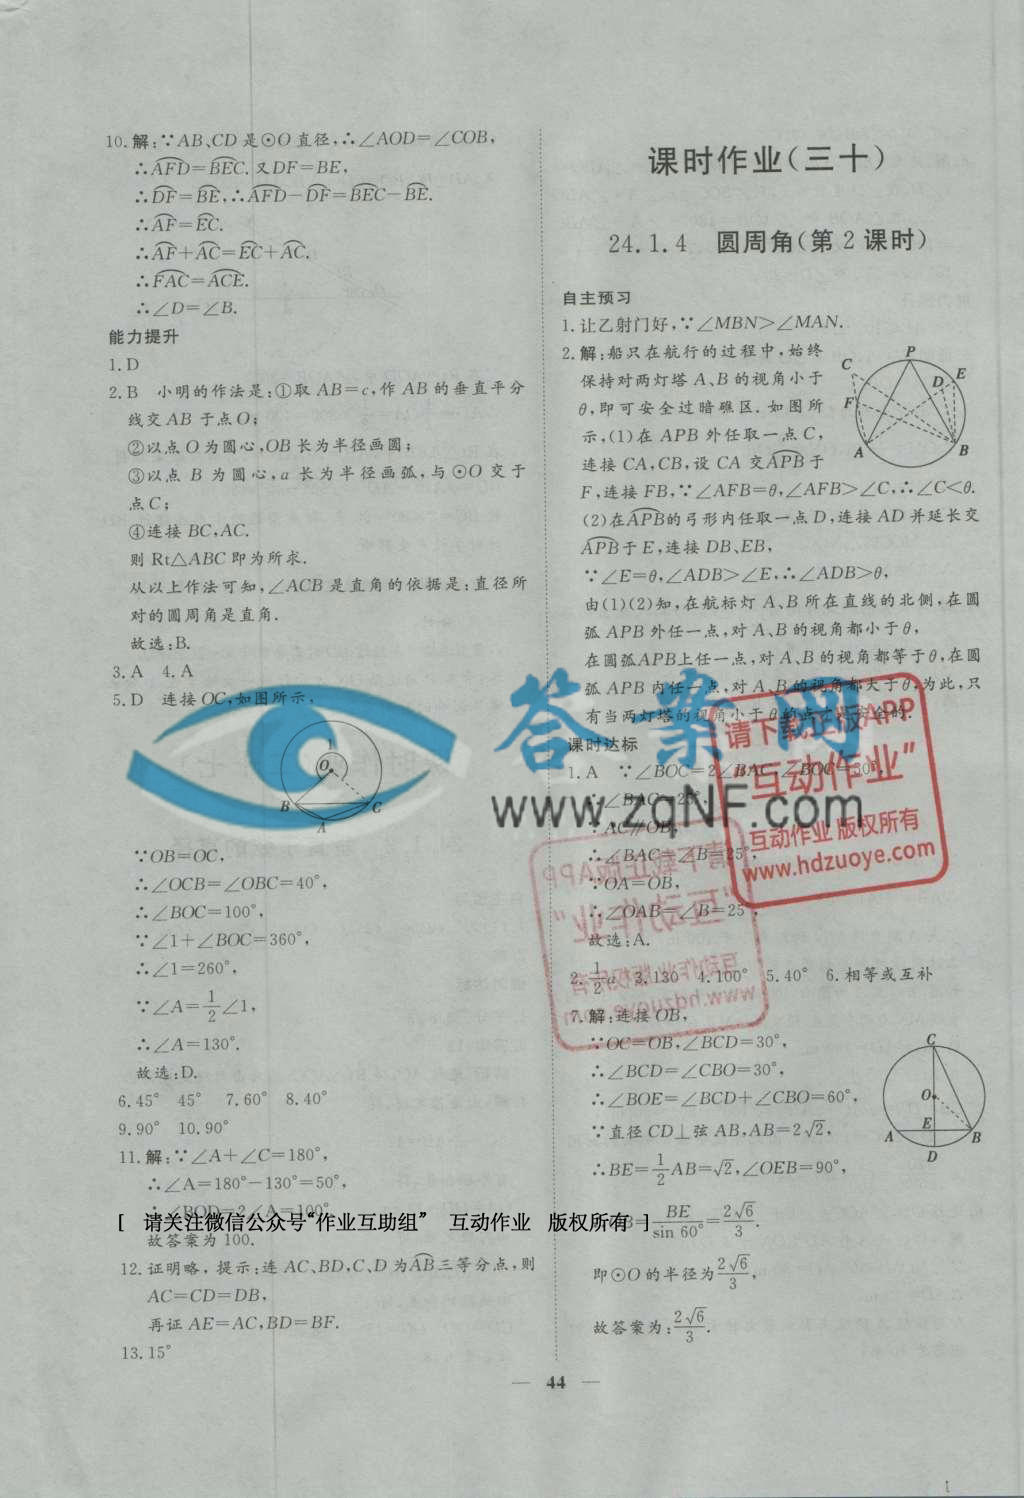 10.解:∵AB、CD是⊙O直径,∴∠AOD=∠COB,
∴AFD=BEC.又DF=BE,
∴DF=BE,∴AFD-DF=BEC-BE.
∴AF=EC.
∴AF+AC=EC+AC.
∴FAC=ACE.
∴∠D=∠B.
能力提升
1.D
2.B 小明的作法是:①取AB=c,作AB的垂直平分
线交AB于点O;
②以点O为圆心,OB长为半径画圆;
③以点B为圆心,a长为半径画弧,与⊙O交于
点C;
④连接BC,AC.
则Rt△ABC即为所求.
从以上作法可知,∠ACB是直角的依据是:直径所
对的圆周角是直角.
故选:B.
3.A 4.A
5.D 连接OC,如图所示,
1
O
B
C
A
∵OB=OC,
∴∠OCB=∠OBC=40°,
∴∠BOC=100°,
∵∠1+∠BOC=360°,
∴∠1=260°,
∵∠A=1/2∠1,
∴∠A=130°.
故选:D.
6.45° 45° 7.60° 8.40°
9.90° 10.90°
11.解:∵∠A+∠C=180°,
∴∠A=180°-130°=50°,
∴∠BOD=2∠A=100°
故答案为100.
12.证明略,提示:连AC、BD,C、D为AB三等分点,则
AC=CD=DB,
再证AE=AC,BD=BF.
13.15°
课时作业(三十)
24.1.4 圆周角(第2课时)
自主预习
1.让乙射门好,∵∠MBN>∠MAN.
2.解:船只在航行的过程中,始终
保持对两灯塔A、B的视角小于
θ,即可安全过暗礁区.如图所
示,(1)在APB外任取一点C,
连接CA,CB,设CA交APB于
F,连接FB,∵∠AFB=θ,∠AFB>∠C,∴∠C<θ.
(2)在APB的弓形内任取一点D,连接AD并延长交
APB于E,连接DB、EB,
∵∠E=θ,∠ADB>∠E,∴∠ADB>θ,
由(1)(2)知,在航标灯A、B所在直线的北侧,在圆
弧APB外任一点,对A、B的视角都小于θ,
在圆弧APB上任一点,对A、B的视角都等于θ,在圆
弧APB内任一点,对A、B的视角都大于θ,为此,只
有当两灯塔的视角小于θ的点才是安全的.
P
C
D
E
F
A
B
课时达标
1.A ∵∠BOC=2∠BAC,∠BOC=50°,
∴∠BAC=25°,
∵AC∥OB,
∴∠BAC=∠B=25°,
∵OA=OB,
∴∠OAB=∠B=25°,
故选:A.
2.1/2a 3.130 4.100° 5.40° 6.相等或互补
7.解:连接OB,
∵OC=OB,∠BCD=30°,
∴∠BCD=∠CBO=30°,
∴∠BOE=∠BCD+∠CBO=60°,
∵直径CD⊥弦AB,AB=2√2,
∴BE=1/2AB=√2,∠OEB=90°,
B=BE/sin 60°=2√6/3.
即⊙O的半径为2√6/3,
故答案为:2√6/3.
C
O
E
A
B
D
44
[ 请关注微信公众号“作业互助组” 互动作业 版权所有 ]
答案网
www.zqNF.com
请下载正版APP
“互动作业”
互动作业 版权所有
www.hdzuoye.com
请下载正版APP
“互动作业”
互动作业 版权所有
www.hdzuoye.com